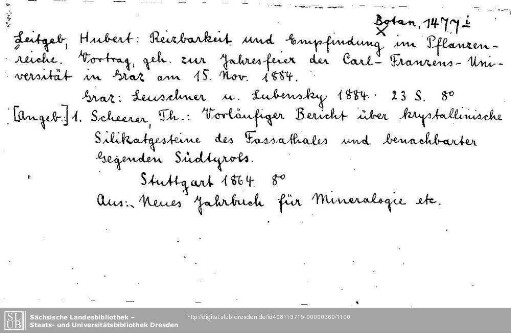 Botan. 1477 i
Leitgeb, Hubert: Reizbarkeit und Empfindung im Pflanzen-
reiche. Vortrag, geh. zur Jahresfeier der Carl-Franzens-Uni-
versität in Graz am 15. Nov. 1884.
Graz: Leuschner u. Lubensky 1884. 23 S. 8°
[Angeb.] 1. Scheerer, Th.: Vorläufiger Bericht über krystallinische
Silikatgesteine des Fassathales und benachbarter
Gegenden Südtyrols.
Stuttgart 1864. 8°
Aus: Neues Jahrbuch für Mineralogie etc.
SLUB
Sächsische Landesbibliothek –
Staats- und Universitätsbibliothek Dresden